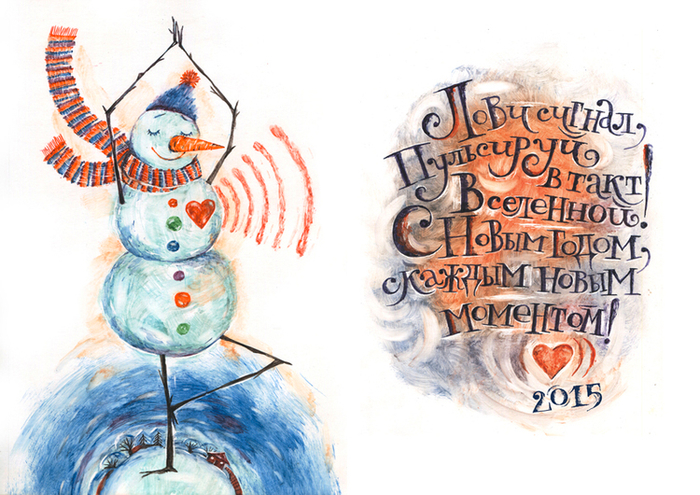 Лови сигнал,
Пульсируй
в такт
Вселенной!
С Новым годом,
с каждым новым
моментом!
2015